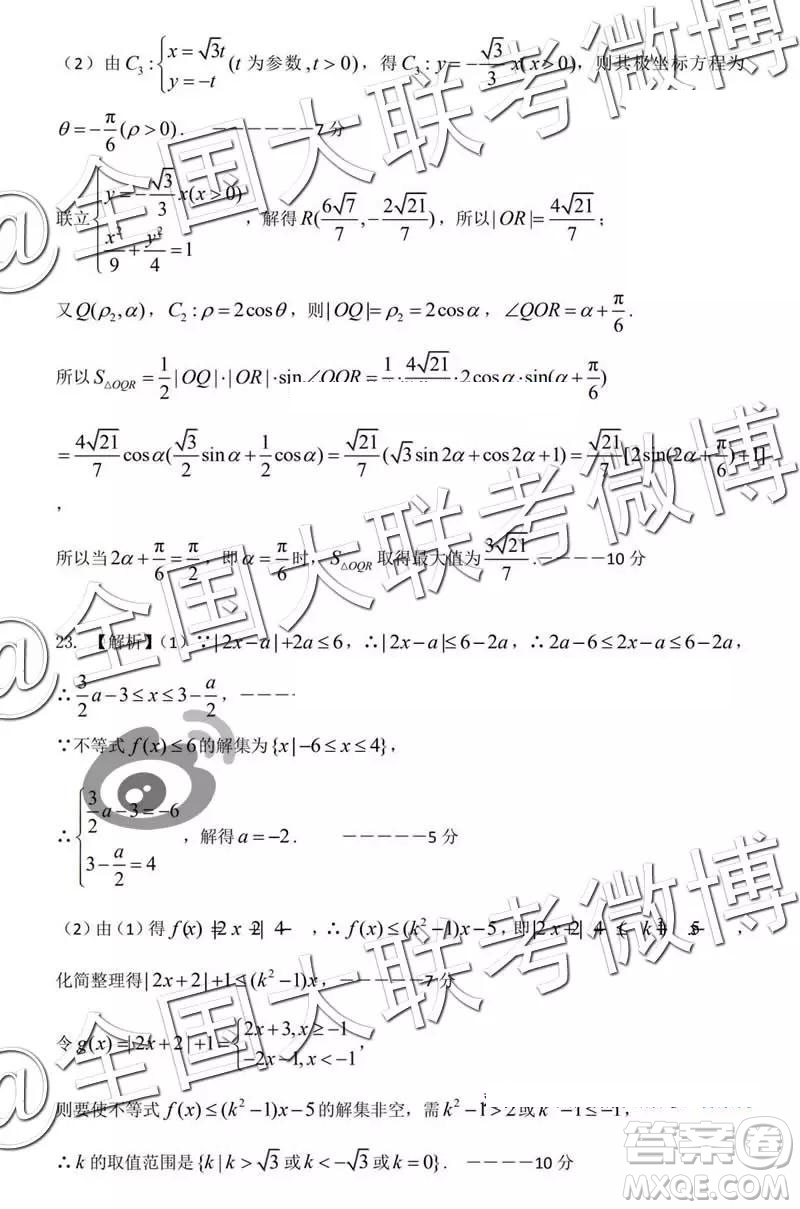 （2）由C₃:{x=√3t, y=−t (t为参数,t>0)，得C₃:y=−(√3/3)x(x>0)，则其极坐标方程为
θ=−π/6(ρ>0)． ——————7分
联立{y=−(√3/3)x(x>0), x²/9+y²/4=1，解得R(6√7/7,−2√21/7)，所以|OR|=4√21/7；
又Q(ρ₂,α)，C₂:ρ=2cosθ，则|OQ|=ρ₂=2cosα，∠QOR=α+π/6．
所以S△OQR=1/2|OQ|·|OR|·sin∠QOR=1/2·4√21/7·2cosα·sin(α+π/6)
=4√21/7cosα(√3/2sinα+1/2cosα)=√21/7(√3sin2α+cos2α+1)=√21/7[2sin(2α+π/6)+1]
，
所以当2α+π/6=π/2，即α=π/6时，S△OQR取得最大值为3√21/7． ————10分
23. 【解析】（1）∵|2x−a|+2a≤6，∴|2x−a|≤6−2a，∴2a−6≤2x−a≤6−2a，
∴3/2a−3≤x≤3−a/2，————
∵不等式f(x)≤6的解集为{x|−6≤x≤4}，
∴{3/2a−3=−6, 3−a/2=4，解得a=−2． —————5分
（2）由（1）得f(x)=|2x+2|−4，∴f(x)≤(k²−1)x−5，即|2x+2|−4≤(k²−1)x−5，
化简整理得|2x+2|+1≤(k²−1)x，—————7分
令g(x)=|2x+2|+1={2x+3,x≥−1, −2x−1,x<−1，
则要使不等式f(x)≤(k²−1)x−5的解集非空，需k²−1>2或k²−1≤−1，
∴k的取值范围是{k|k>√3或k<−√3或k=0}． ————10分
@全国大联考微博
@全国大联考微博
答案卷
MXQE.COM